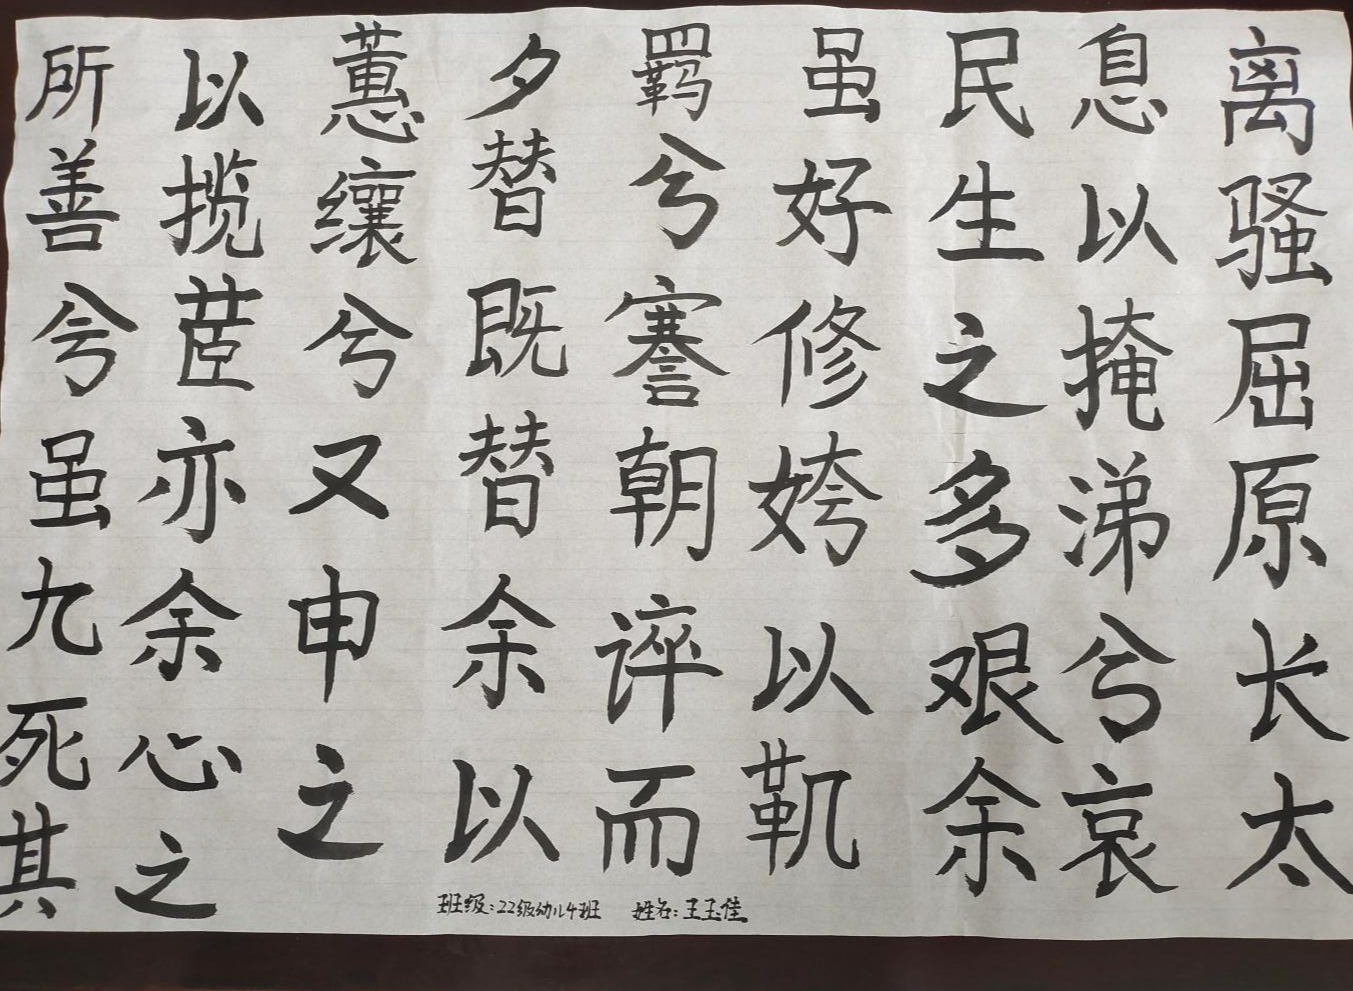 离骚屈原长太
息以掩涕兮哀
民生之多艰余
虽好修姱以靰
羁兮謇朝谇而
夕替既替余以
蕙纕兮又申之
以揽茝亦余心之
所善兮虽九死其
班级：22级幼儿4班 姓名：王玉佳